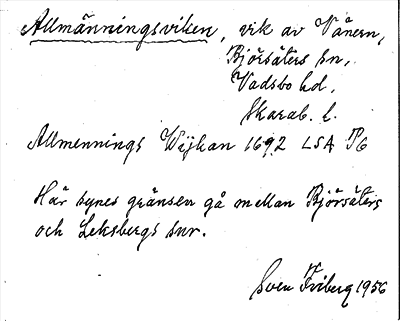 Allmänningsviken, vik av Vänern,
Björsäters sn,
Vadsbo hd,
Skarab. l.
Allmennings Wijkan 1692 LSA P6
Här synes gränsen gå mellan Björsäters
och Leksbergs snr.
Sven Friberg 1956